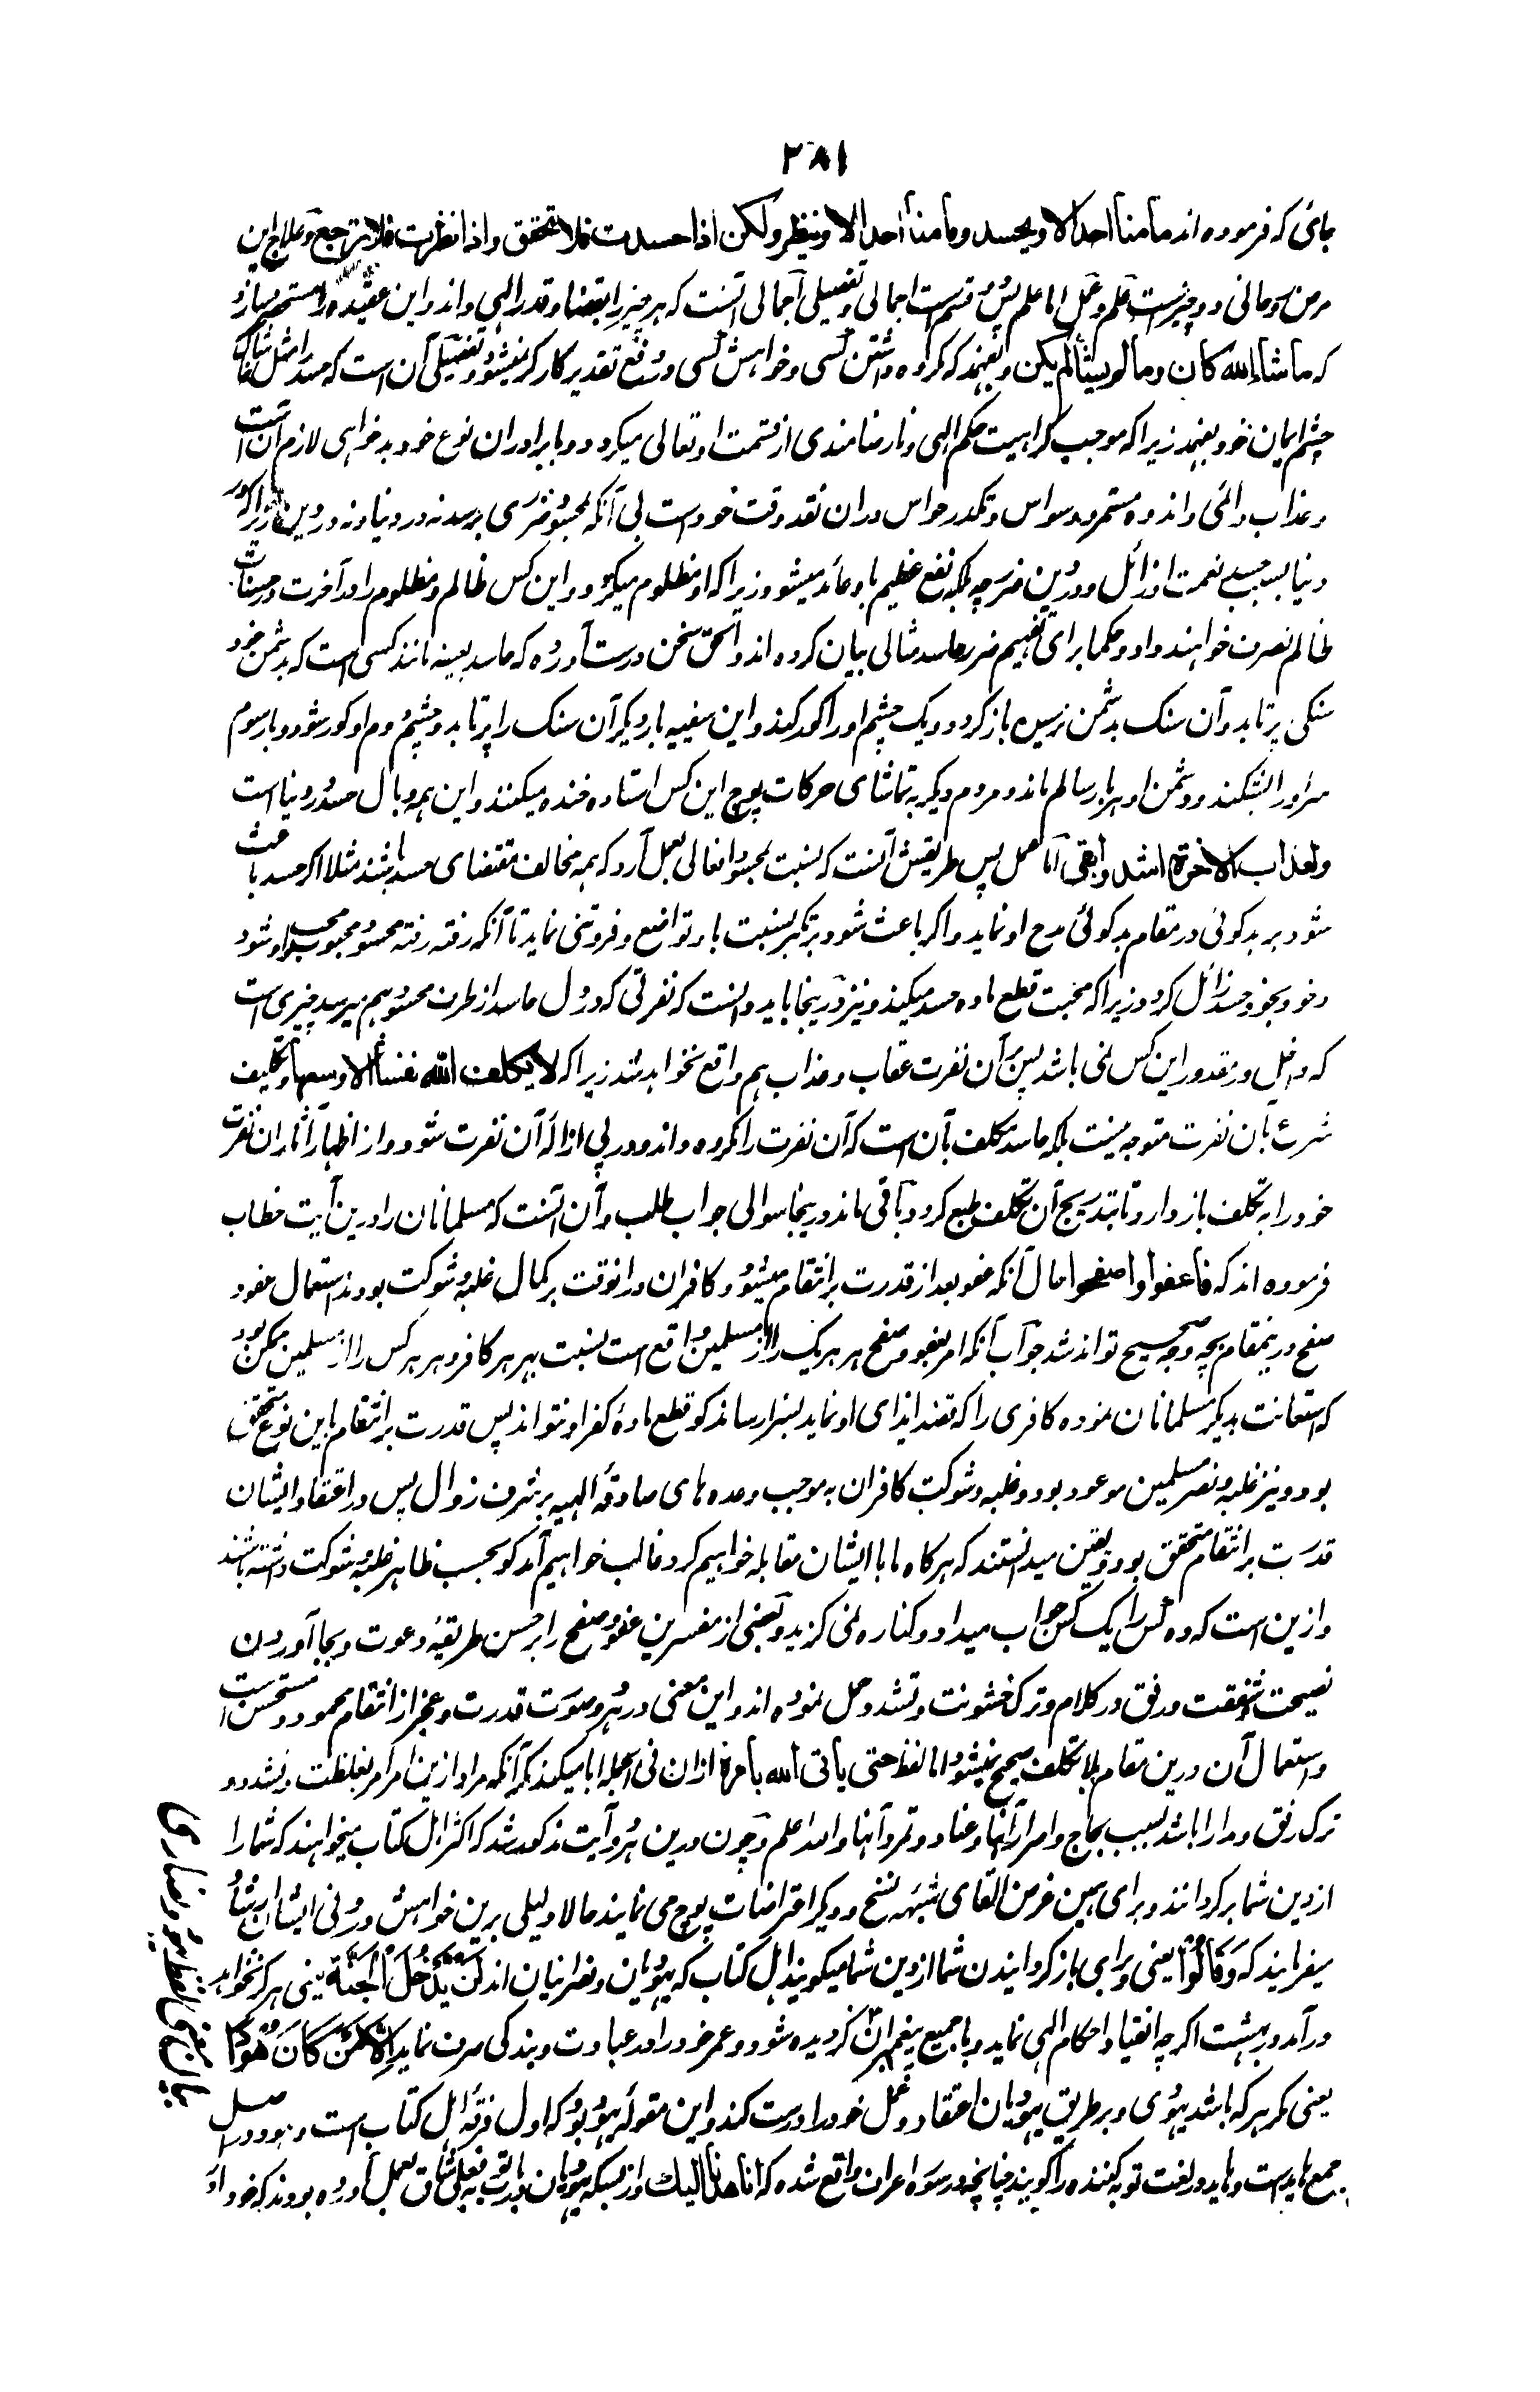 ۳۸۱
بائی که فرموده اند ما منا احد الا ویحسد وما منا احد الا وینظر ولکن اذا حسدت فلا تحقق واذا نظرت فلا ترجع وعلاج این
مرض روحانی دو چیز است علم وعمل اما علم پس دو قسم است اجمالی وتفصیلی اجمالی آنست که هر چیز را بقضا وقدر الهی داند واین عقیده را مستحضر سازد
که ما شاء الله کان وما لم یشأ لم یکن وبفهمد که مکروه داشتن کسی وخواهش کسی در دفع تقدیر کارگر نمیشود وتفصیلی آن است که حسد را مثل خاشاک
چشم ایمان خود بفهمد زیرا که موجب کراهیت حکم الهی ونارضامندی از قسمت او تعالی میگردد وبا برادران نوع خود بدخواهی لازم آن است
وعذاب دائمی واندوه مستمر ووسواس وتکدر حواس دران نقد وقت خود است بی آنکه بمحسود ضرری برسد نه در دنیا ونه در دین زیرا که در
دنیا بسبب حسد نعمت او زائل ودر دین ضرر چه بلکه نفع عظیم باو عائد میشود زیرا که او مظلوم میگردد واین کس ظالم ومظلوم را در آخرت حسنات
ظالم نصرف خواهند داد وحکما برای تفهیم ضرر حاسد مثالی بیان کرده اند والحق سخن درست آورده که حاسد بعینه مانند کسی است که بدشمن خود
سنگی پرتابد وآن سنگ بدشمن نرسیده باز گردد ویک چشم او را کور کند واین سفیه بار دیگر آن سنگ را پرتابد وچشم دوم او کور شود وبار سوم
سر او را بشکند ودشمن او هر بار سالم ماند ومردم دیگر به تماشای حرکات پوچ این کس استاده خنده میکنند واین همه وبال حسد در دنیا است
ولعذاب الاخرة اشد وابقی اما عمل پس طریقش آنست که بنسبت محسود افعالی بعمل آرد که همه مخالف مقتضای حسد باشند مثلا اگر حسد باعث
شود بر بدگوئی در مقام بدگوئی مدح او نماید واگر باعث شود بر تکبر بنسبت باو تواضع وفروتنی نماید تا آنکه رفته رفته محسود محبوب او شود
وخود بخود حسد زائل گردد زیرا که محبت قطع ماده حسد میکند ونیز در ینجا باید دانست که نفرتی که در دل حاسد از طرف محسود بهم میرسد چیزی است
که دخیل در مقدور این کس نمی باشد پس بر آن نفرت عقاب وعذاب هم واقع نخواهد شد زیرا که لا یکلف الله نفسا الا وسعها وتکلیف
شرع بآن نفرت متوجه نیست بلکه حاسد مکلف بآن است که آن نفرت را مکروه داند ودر پی ازاله آن نفرت شود واز اظهار آثار ان نفرت
خود را به تکلف باز دارد تا بتدریج آن تکلف طبع گردد وباقی ماند در ینجا سوالی جواب طلب وآن آنست که مسلمانان را درین آیت خطاب
فرموده اند که فاعفوا واصفحوا حال آنکه عفو بعد از قدرت بر انتقام میشود وکافران درانوقت بر کمال غلبه وشوکت بودند استعمال عفو و
صفح در ینمقام بچه وجه صحیح تواند شد جواب آنکه امر بعفو وصفح هر هر یک را از مسلمین واقع است بنسبت هر هر کافر وهر هر کس را از مسلمین ممکن بود
که استعانت بدیگر مسلمانان نموده کافری را که قصد ایذای او نماید بسزا رساند گو قطع ماده کفر او نتواند پس قدرت بر انتقام باین نوع متحقق
بود ونیز غلبه ونصر مسلمین موعود بود وغلبه وشوکت کافران به موجب وعده های صادقه الهیه بر شرف زوال پس در اعتقاد ایشان
قدرت بر انتقام متحقق بود ویقین میدانستند که هرگاه ما با ایشان مقابله خواهیم کرد غالب خواهیم آمد گو بحسب ظاهر غلبه وشوکت داشته باشند
وازین است که ده کس را یک کس جواب میداد وکناره نمی گزید وبعضی از مفسرین عفو وصفح را بر حسن طریقه دعوت وبجا آوردن
نصیحت وشفقت ورفق در کلام وترک خشونت وتشدد حمل نموده اند واین معنی در هر دو صورت قدرت وعجز از انتقام محمود ومستحسن است
واستعمال آن درین مقام بلا تکلف صحیح میشود اما لفظ حتی یاتی الله بامره ازان فی الجمله ابا میکند مگر آنکه مراد ازین امر امر بغلظت وتشدد و
ترک رفق ومدارا باشد بسبب لجاج واصرار آنها وعناد وتمرد آنها والله اعلم وچون درین هر دو آیت مذکور شد که اکثر اهل کتاب میخواهند که شما را
از دین شما برگردانند وبرای همین غرض القای شبهه نسخ ودیگر اعتراضات پوچ می نمایند حالا دلیلی برین خواهش درونی ایشان ارشاد
میفرمایند که وَقَالُوْا یعنی وبرای باز گردانیدن شما از دین شما میگویند اهل کتاب که یهودیان ونصرانیان اند لَنْ یَدْخُلَ الْجَنَّةَ یعنی هرگز نخواهد
درآمد در بهشت اگر چه انقیاد احکام الهی نماید وبا جمیع پیغمبران گرویده شود وعمر خود را در عبادت وبندگی صرف نماید اِلَّا مَنْ کَانَ هُوْدًا
یعنی مگر هر که باشد یهودی وبر طریق یهودیان اعتقاد وعمل خود را درست کند واین مقوله یهود بود که اول فرقه اهل کتاب است وهود در اصل
جمع هاید است وهاید در لغت توبه کننده را گویند چنانچه در سوره اعراف واقع شده که انا هدنا الیک واز بسکه یهودیان در توبه فعلی شاق بعمل آورده بودند که خود را